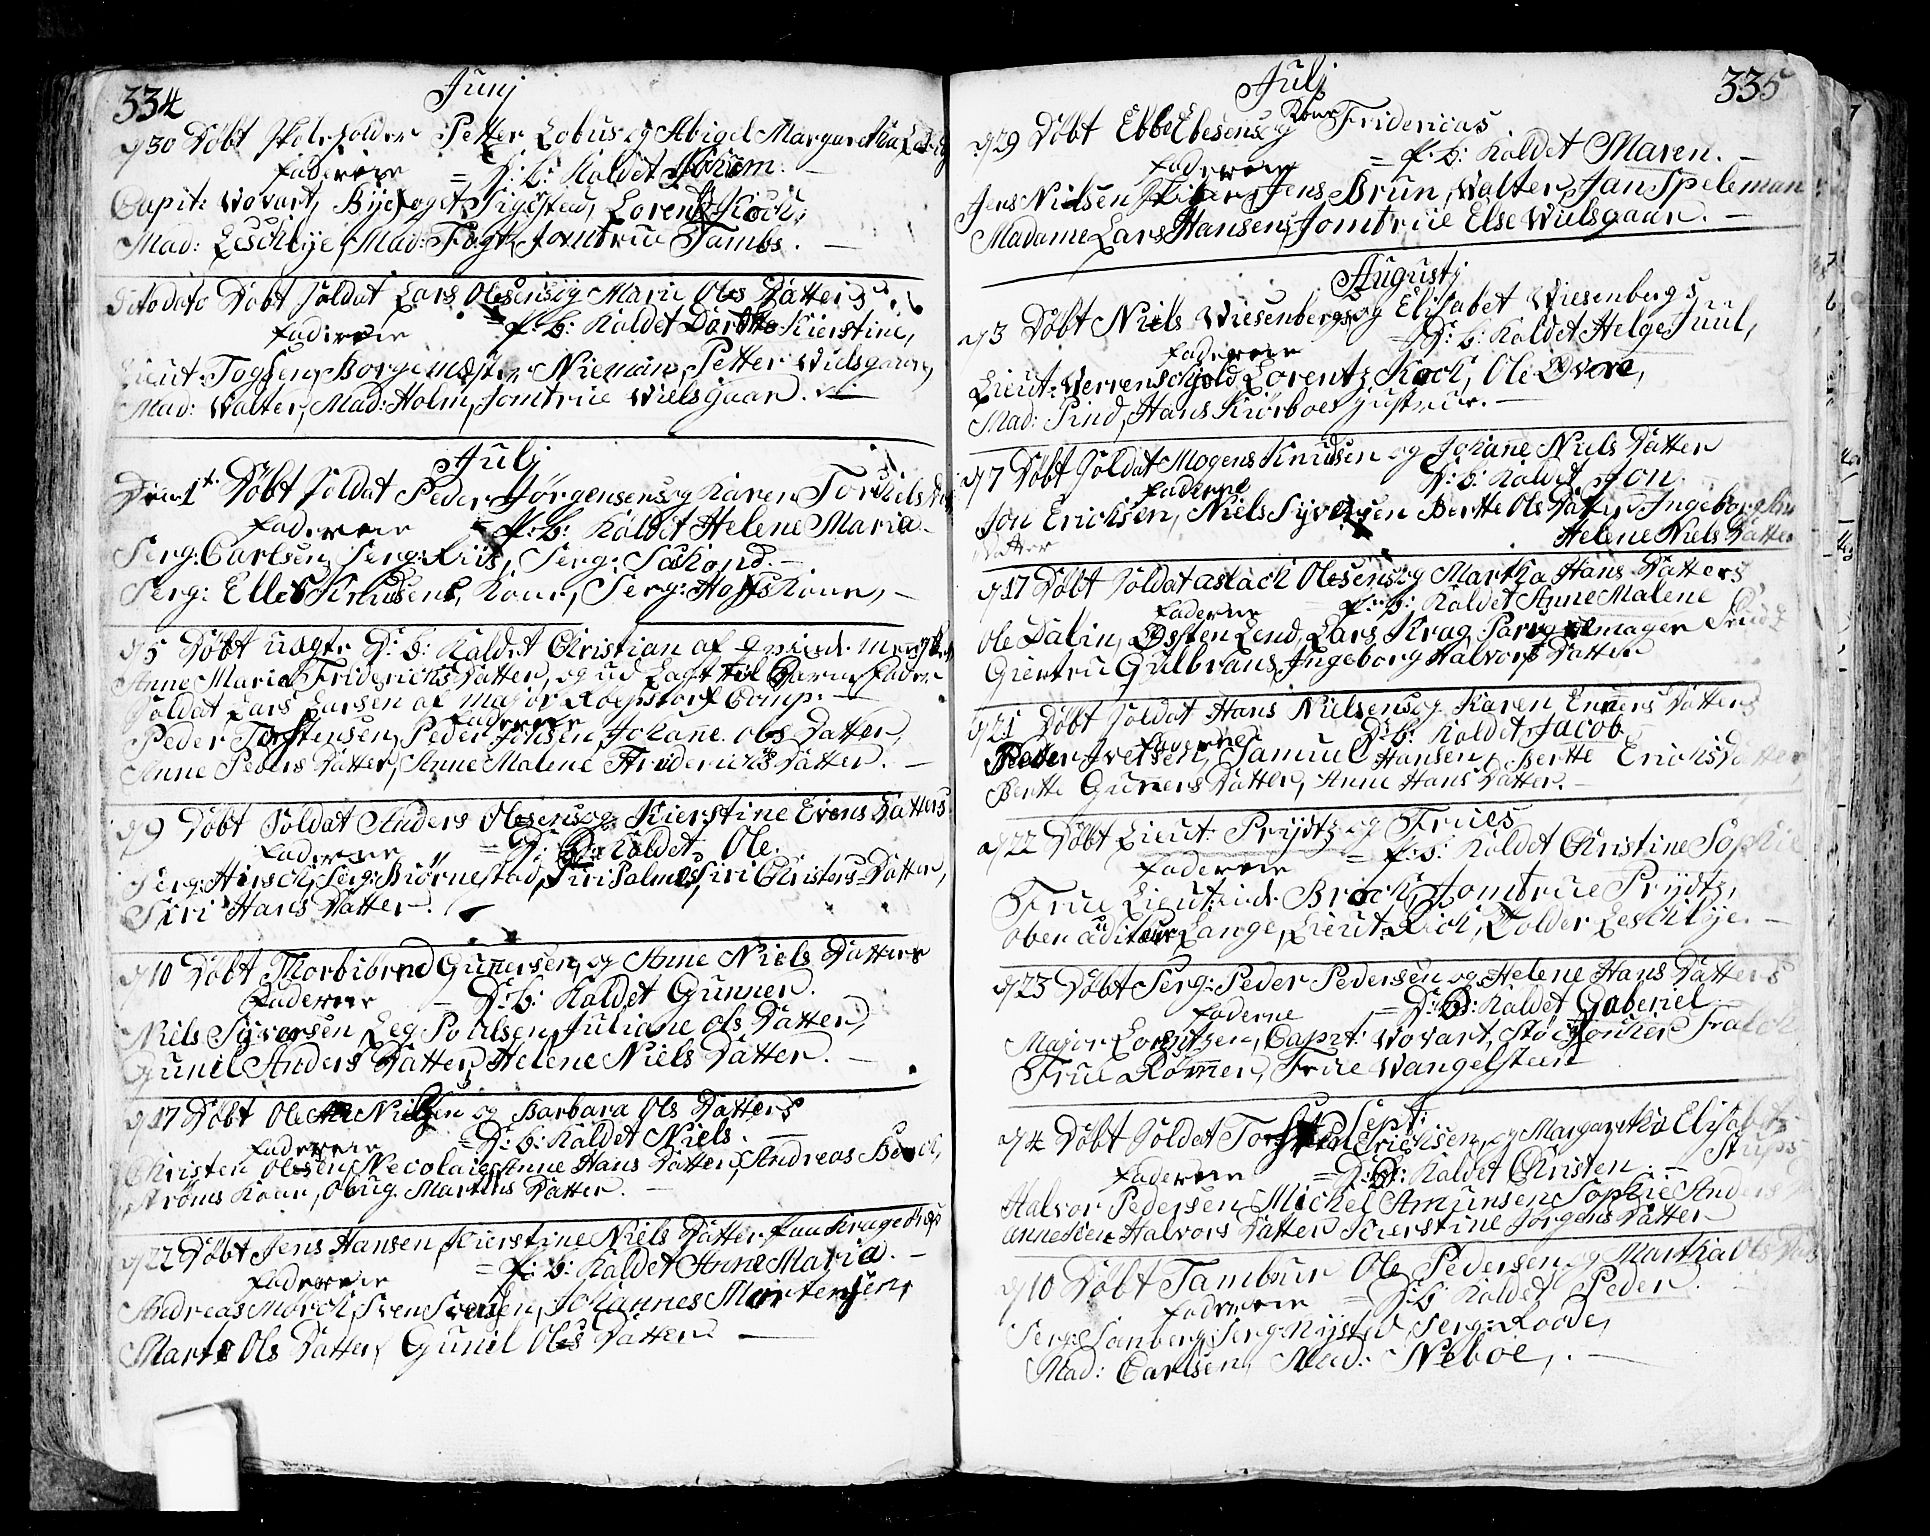 334
Junj
d 30 Döbt Skoleholder Petter Lobus og Abigel Margaretha
Faderne = D: b: Kaldet Jochum.
Capit: Wovart, Byefoget Sigsten, Lorentz Koch,
Mad: Leschlye, Mad: Fogt, Jomfrue Tambs.
Dito dato Döbt Soldat Lars Olesens og Marie Ols Datters
Faderne = P: b: Kaldet Dorthe Kierstine,
Lieut: Togsen, Borgemester Nieman, Petter Wielsgaar,
Mad: Walter, Mad: Holm, Jomfrue Wielsgaar.
Julj
Den 1t Döbt Soldat Peder Jörgensens og Karen Torkiels
Fadderne = P: b: Kaldet Helene Maria.
Serg: Carlsen, Serg: Riis, Serg: Sachond.
Serg: Elles Knudsens Kone, Serg: Hoffs Kone,
d 5 Döbt uægte D: b: Kaldet Christian af qvinde
Anne Maria Friderichs Datter, og ud Lagt til Barne Fader
Soldat Lars Larsen af Major Roepstorf Comp:
Fadderne
Peder Torstensen, Peder Johsen, Johanne Ols Datter,
Anne Peders Datter, Anne Malene Friderichs Datter.
d 9 Döbt Soldat Anders Olesens og Kierstine Evens Datters
Fadderne = D: b: Kaldet Ole.
Serg: Hirsch, Serg: Biörnestad, Siri Palmes, Siri Christens Datter,
Siri Hans Datter.
d 10 Döbt Thorbiörnd Gunnersen og Anne Niels Datters
Fadderne D: b: Kaldet Gunner.
Niels Syversen, Leg Poulsen, Juliane Ols Datter,
Gunil Anders Datter, Helene Niels Datter.
d 17 Döbt Ole Nielsen og Barbara Ols Datters
Fadderne = D: b: Kaldet Niels.
Christen Olsen, Necolai, Anne Hans Datter, Andreas
ströms Kone, Obug Martins Datter.
d 22 Döbt Jens Hansen, Kierstine Niels Datter, fra Kragerö
Fadderne = P: b: Kaldet Anne Maria.
Andreas Morch, Sven Svensen, Johannes Mortensen,
Marte Ols Datter, Gunil Ols Datter
335
Julj
d 29 Döbt Ebbe Ebesens og Kone Fridericas
Fadderne = P: b: Kaldet Maren.
Jens Nielsen Skiber, Jens Brun, Walter, Jan Speleman
Madame Lars Hansens, Jomfrue Else Wielsgaar.
Augustj
d 3 Döbt Niels Wiesenbergs og Elisabet Wiesenbergs
Fadderne = D: b: Kaldet Helge Juul,
Lieut: Werrenschjold, Lorentz Koch, Ole Övere,
Mad: Pind, Hans Kiörboes Justrue.
d 7 Döbt Soldat Mogens Knudsen og Johane Niels Datter
Faderne D: b: Kaldet Jon.
Jon Ericksen, Niels Syversen, Berthe Ols Datter, Ingeborg
Datter Helene Niels Datter
d 17 Döbt Soldat Aslach Olesens og Martha Hans Datters
Faderne P: b: Kaldet Anne Malene
Ole Dalin, Östen Lend, Lars Krag
Giertru Gulbrans, Ingeborg Halvors Datter
d 21 Döbt Soldat Hans Nielsens og Karen Enners Datters
Faderne D: b: Kaldet Jacob
Peder Iversen, Samuel Hansen, Berthe Erichs Datter
Berthe Gunners Datter, Anne Hans Datter.
d 22 Döbt Lieut: Prydtz og Frues
Fadderne = P: b: Kaldet Christine Sophie
Frue Lieutinde Brock, Jomfrue Prydtz,
Ober auditeur Lange, Lieut: Rich, Tolder Leschlye.
d 23 Döbt Serg: Peder Pedersen og Helene Hans Datters
Faderne = D: b: Kaldet Gaberiel
Major Lorentzen, Capit: Wovart, Stöckjonker
Frue Römmer, Frue Wangelsteen
Sept:
d 4 Döbt Soldat Torsten Erichsen, og Margaretha Elisabets
Fadderne = D: b: Kaldet Christen. Stups
Halvor Pedersen, Michel Amunsen, Sophie Anders
Anne Halvors Datter Kierstine Jörgens Datter
d 10 Döbt Tambuur Ole Pedersen og Martha Ols
Fadderne = D: b: Kaldet Peder
Serg: Sanberg, Serg: Nysted, Serg: Roode,
Mad: Carlsen, Mad: Neboe,.